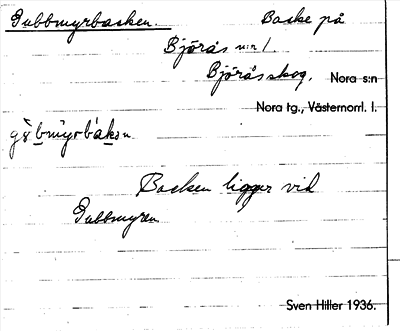 Gubbmyrbacken. Backe på
Björås n:r 1.
Björås skog, Nora s:n
Nora tg., Västernorrl. l.
Backen ligger vid
Gubbmyren
Sven Hiller 1936.